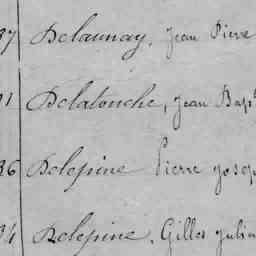 37 Delaunay, Jean Pierre
91 Delatouche, Jean Bapt
36 Delepine Pierre Josep
34 Delepine, Gilles Julien